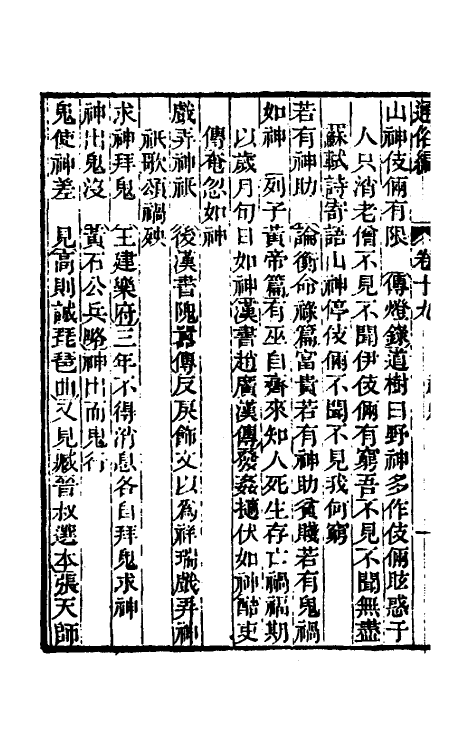 通俗編　卷十九
山神伎倆有限　傳燈錄道樹曰野神多作伎倆眩惑于
人只消老僧不見不聞伊伎倆有窮吾不見不聞無盡
蘇軾詩寄語山神停伎倆不聞不見我何窮
若有神助　論衡命祿篇富貴若有神助貧賤若有鬼禍
如神　列子黃帝篇有巫自齊來知人死生存亡禍福期
以歲月旬日如神漢書趙廣漢傳發姦擿伏如神酷吏
傳奄忽如神
戲弄神祇　後漢書隗囂傳反戾飾文以為祥瑞戲弄神
祇歌頌禍殃
求神拜鬼　王建樂府三年不得消息各自拜鬼求神
神出鬼沒　黃石公兵略神出而鬼行
鬼使神差　見高則誠琵琶曲又見臧晉叔選本張天師